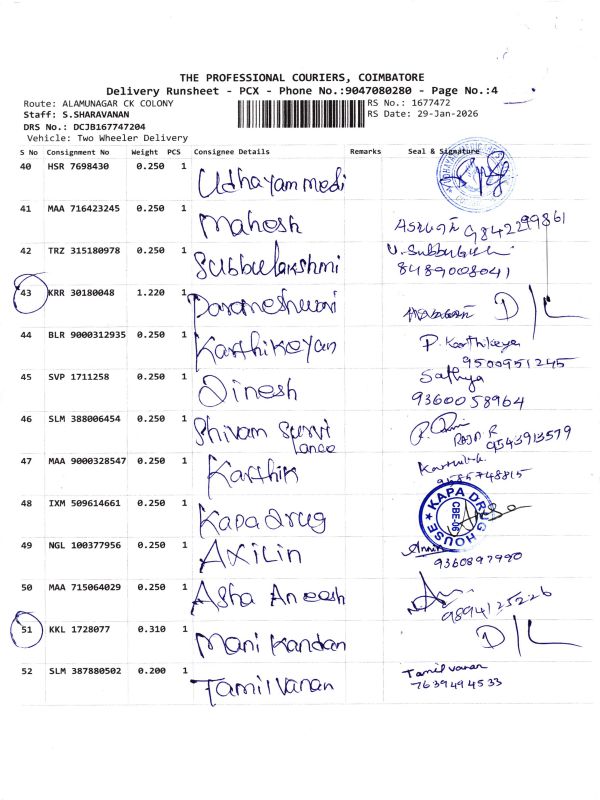 THE PROFESSIONAL COURIERS, COIMBATORE
Delivery Runsheet - PCX - Phone No.:9047080280 - Page No.:4
Route: ALAMUNAGAR CK COLONY
Staff: S.SHARAVANAN
DRS No.: DCJB167747204
Vehicle: Two Wheeler Delivery
RS No.: 1677472
RS Date: 29-Jan-2026
S No Consignment No Weight PCS Consignee Details Remarks Seal & Signature
40 HSR 7698430 0.250 1 Udhayam medi
41 MAA 716423245 0.250 1 Mahesh 9842299861
42 TRZ 315180978 0.250 1 Subbulakshmi V. Subbulakshmi
8489008041
43 KRR 30180048 1.220 1 Parameshwari D/L
44 BLR 9000312935 0.250 1 Karthikeyan P. Karthikeya
9500951245
45 SVP 1711258 0.250 1 Dinesh Sathya
9360058964
46 SLM 388006454 0.250 1 Shivam Survi
lance
RAJA R 9543913579
47 MAA 9000328547 0.250 1 Karthik
9585748815
48 IXM 509614661 0.250 1 Kapa drug KAPA DRUG HOUSE CBE-06
49 NGL 100377956 0.250 1 AXILIN
9360897990
50 MAA 715064029 0.250 1 Asha Aneesh
9894125226
51 KKL 1728077 0.310 1 Mani Kandan D/L
52 SLM 387880502 0.200 1 Tamil Vanan Tamil Vanan
7639494533